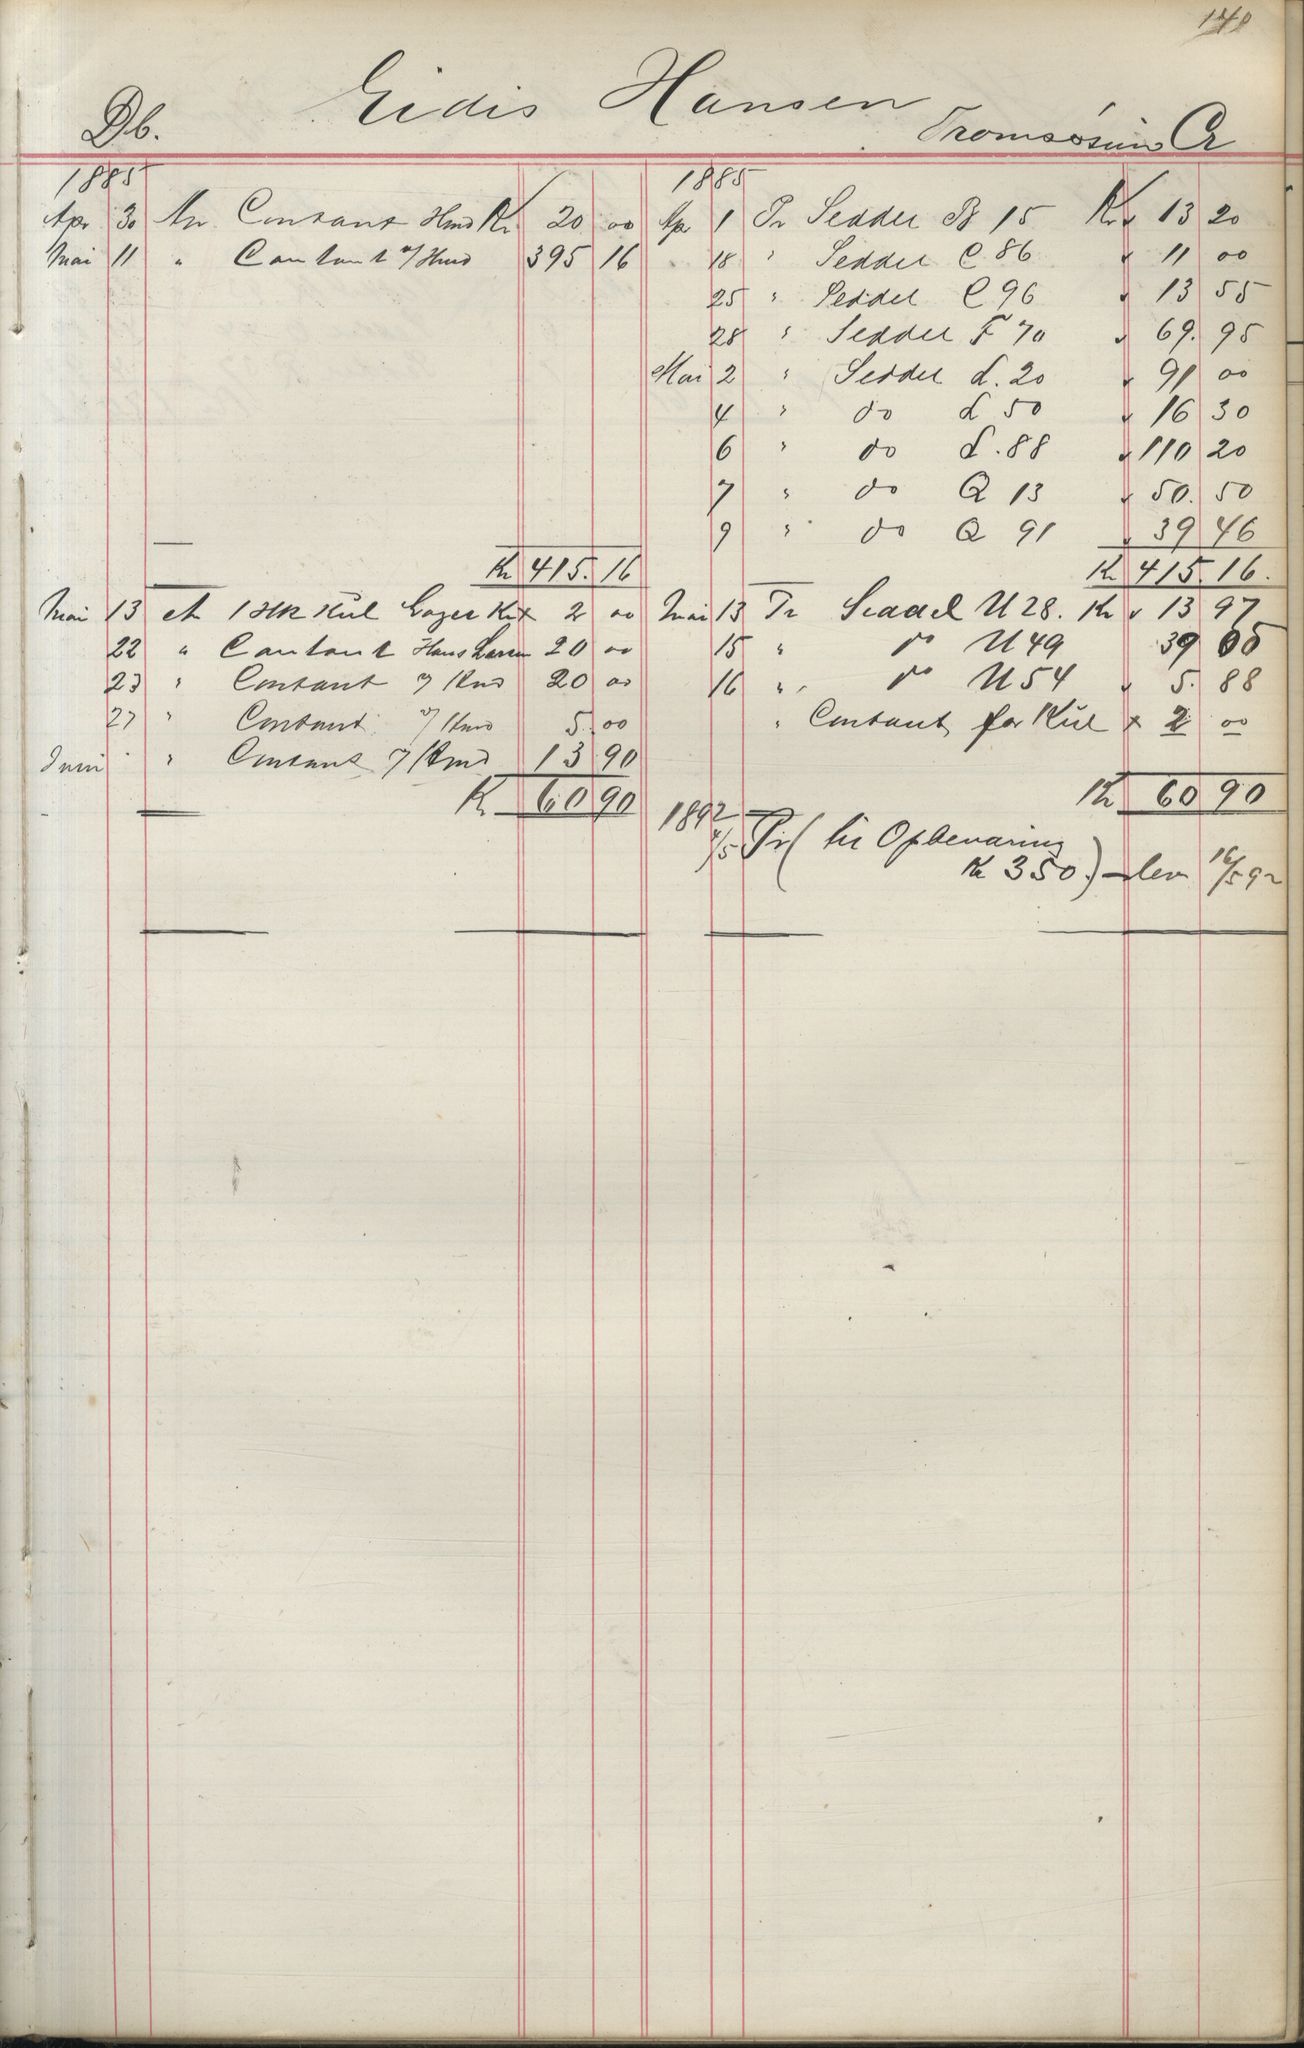 140
Eidis Hansen
Db. Tromsøsund Cr
1885
Apr 30 An Contant Hmd Kr 20 00
Mai 11 " Contant v/ Hmd 395 16
Kr 415.16
Mai 13 An 1 Hk Kul Kr x 2 00
22 " Contant Hans Larsen 20 00
23 " Contant v/ Hmd 20 00
27 " Contant v/ Hmd 5.00
Juni " Contant v/ Hmd 13 90
Kr 60 90
1885
Apr 1 Pr Seddel B 15 Kr 13 20
18 " Seddel C 86 11 00
25 " Seddel C 96 13 55
28 " Seddel F 70 69.95
Mai 2 " Seddel L. 20 91 00
4 " do L 50 16 30
6 " do L. 88 110 20
7 " do Q 13 50.50
9 " do Q 91 39 46
Kr 415.16.
Mai 13 Pr Seddel U 28. Kr 13 97
15 " do U 49 39 05
16 " do U 54 5.88
" Contant for Kul x 2 00
Kr 60 90
1892
4/5 Pr (til Opbevaring
Kr 350.) – lev 16/5 92